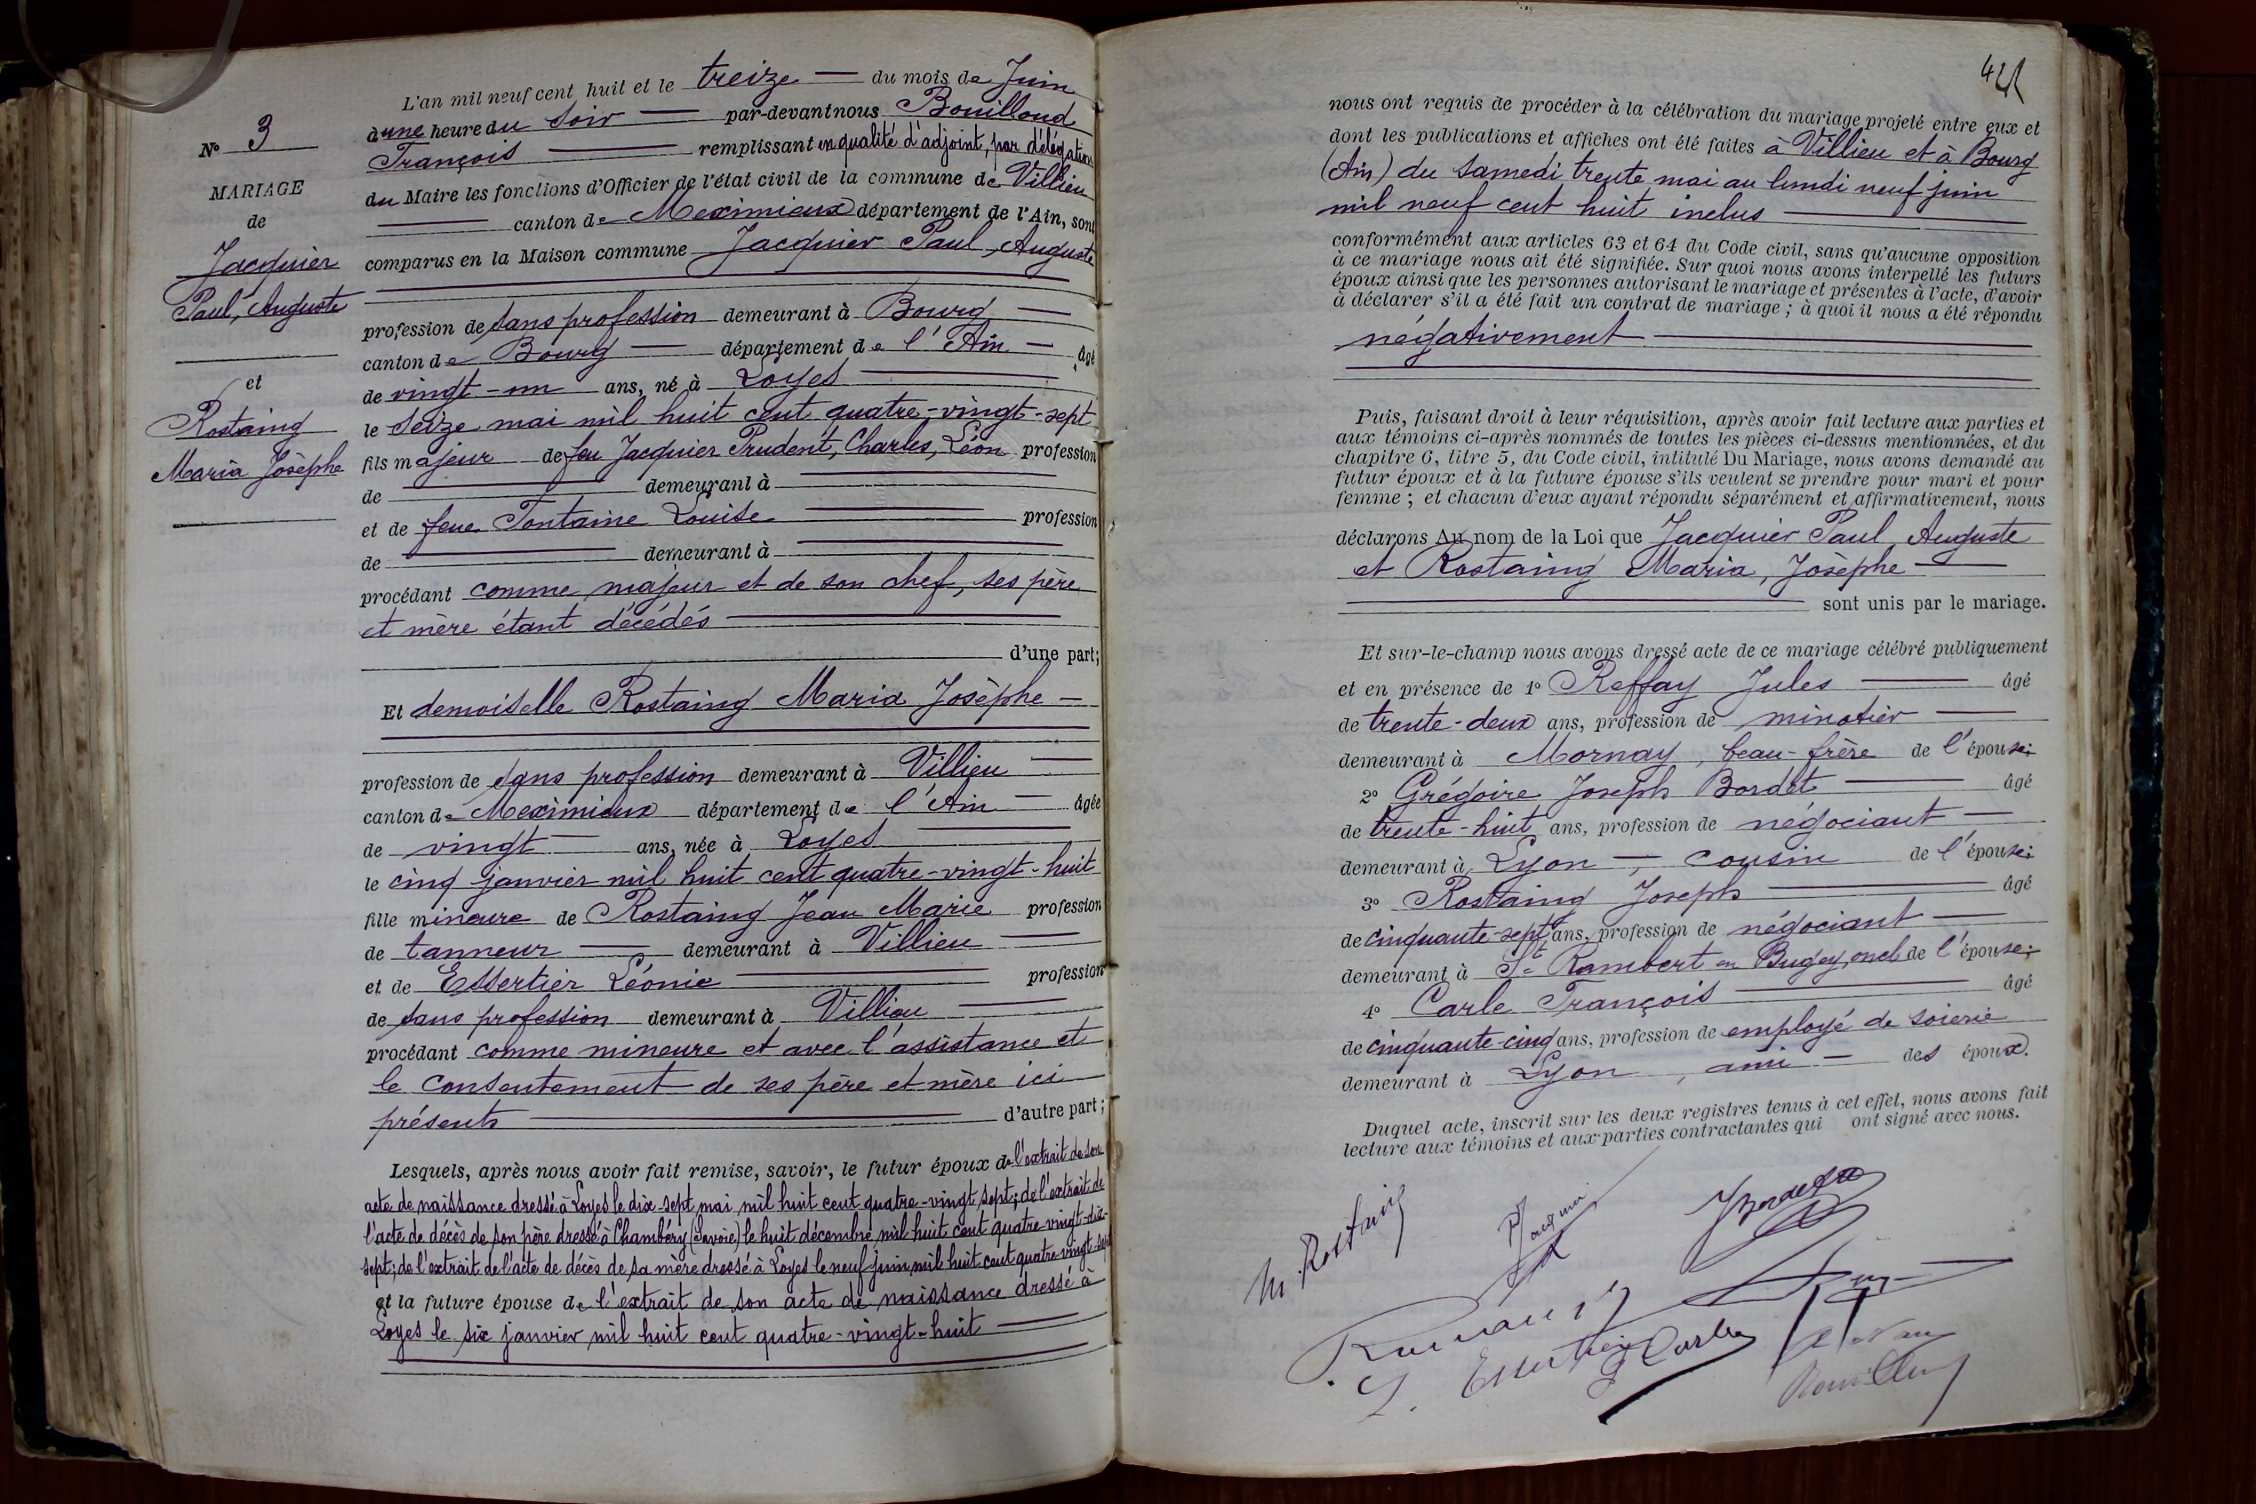 L'an mil neuf cent huit et le treize — du mois de Juin
à une heure du soir — par-devant nous Bouilloud
François — remplissant en qualité d'adjoint, par délégation
du Maire les fonctions d'Officier de l'état civil de la commune de Villieu
— canton de Meximieux département de l'Ain, sont
comparus en la Maison commune Jacquier Paul, Auguste
profession de sans profession demeurant à Bourg —
canton de Bourg — département de l'Ain — âgé
de vingt-un ans, né à Loyes —
le seize mai mil huit cent quatre-vingt-sept
fils majeur de feu Jacquier Prudent, Charles, Léon profession
de — demeurant à —
et de feue Fontaine Louise — profession
de — demeurant à —
procédant comme majeur et de son chef, ses père
et mère étant décédés —
d'une part;
Et demoiselle Rostaing Maria Josèphe —
profession de sans profession demeurant à Villieu —
canton de Meximieux département de l'Ain — âgée
de vingt — ans, née à Loyes —
le cinq janvier mil huit cent quatre-vingt-huit
fille mineure de Rostaing Jean Marie profession
de tanneur — demeurant à Villieu —
et de Essertier Léonie — profession
de sans profession demeurant à Villieu —
procédant comme mineure et avec l'assistance et
le consentement de ses père et mère ici
présents — d'autre part;
Lesquels, après nous avoir fait remise, savoir, le futur époux de l'extrait de son
acte de naissance dressé à Loyes le dix-sept mai mil huit cent quatre-vingt sept; de l'extrait de
l'acte de décès de son père dressé à Chambéry (Savoie) le huit décembre mil huit cent quatre-vingt-dix-
sept; de l'extrait de l'acte de décès de sa mère dressé à Loyes le neuf juin mil huit cent quatre-vingt-sept
et la future épouse de l'extrait de son acte de naissance dressé à
Loyes le six janvier mil huit cent quatre-vingt-huit —
N° 3
MARIAGE
de
Jacquier
Paul, Auguste
et
Rostaing
Maria Josèphe
nous ont requis de procéder à la célébration du mariage projeté entre eux et
dont les publications et affiches ont été faites à Villieu et à Bourg
(Ain) du samedi trente mai au lundi neuf juin
mil neuf cent huit inclus —
conformément aux articles 63 et 64 du Code civil, sans qu'aucune opposition
à ce mariage nous ait été signifiée. Sur quoi nous avons interpellé les futurs
époux ainsi que les personnes autorisant le mariage et présentes à l'acte, d'avoir
à déclarer s'il a été fait un contrat de mariage; à quoi il nous a été répondu
négativement —
Puis, faisant droit à leur réquisition, après avoir fait lecture aux parties et
aux témoins ci-après nommés de toutes les pièces ci-dessus mentionnées, et du
chapitre 6, titre 5, du Code civil, intitulé Du Mariage, nous avons demandé au
futur époux et à la future épouse s'ils veulent se prendre pour mari et pour
femme; et chacun d'eux ayant répondu séparément et affirmativement, nous
déclarons Au nom de la Loi que Jacquier Paul, Auguste
et Rostaing Maria, Josèphe —
sont unis par le mariage.
Et sur-le-champ nous avons dressé acte de ce mariage célébré publiquement
et en présence de 1° Reffay Jules — âgé
de trente-deux ans, profession de minotier —
demeurant à Mornay, beau-frère de l'épouse;
2° Grégoire Joseph Bordet — âgé
de trente-huit ans, profession de négociant —
demeurant à Lyon —, cousin de l'épouse;
3° Rostaing Joseph — âgé
de cinquante-sept ans, profession de négociant —
demeurant à St Rambert en Bugey, oncle de l'épouse;
4° Carle François — âgé
de cinquante-cinq ans, profession de employé de soierie
demeurant à Lyon, ami — des époux.
Duquel acte, inscrit sur les deux registres tenus à cet effet, nous avons fait
lecture aux témoins et aux parties contractantes qui ont signé avec nous.
M. Rostaing
P Jacquier
J Bordet
L. Essertier
Carle
Bouilloud